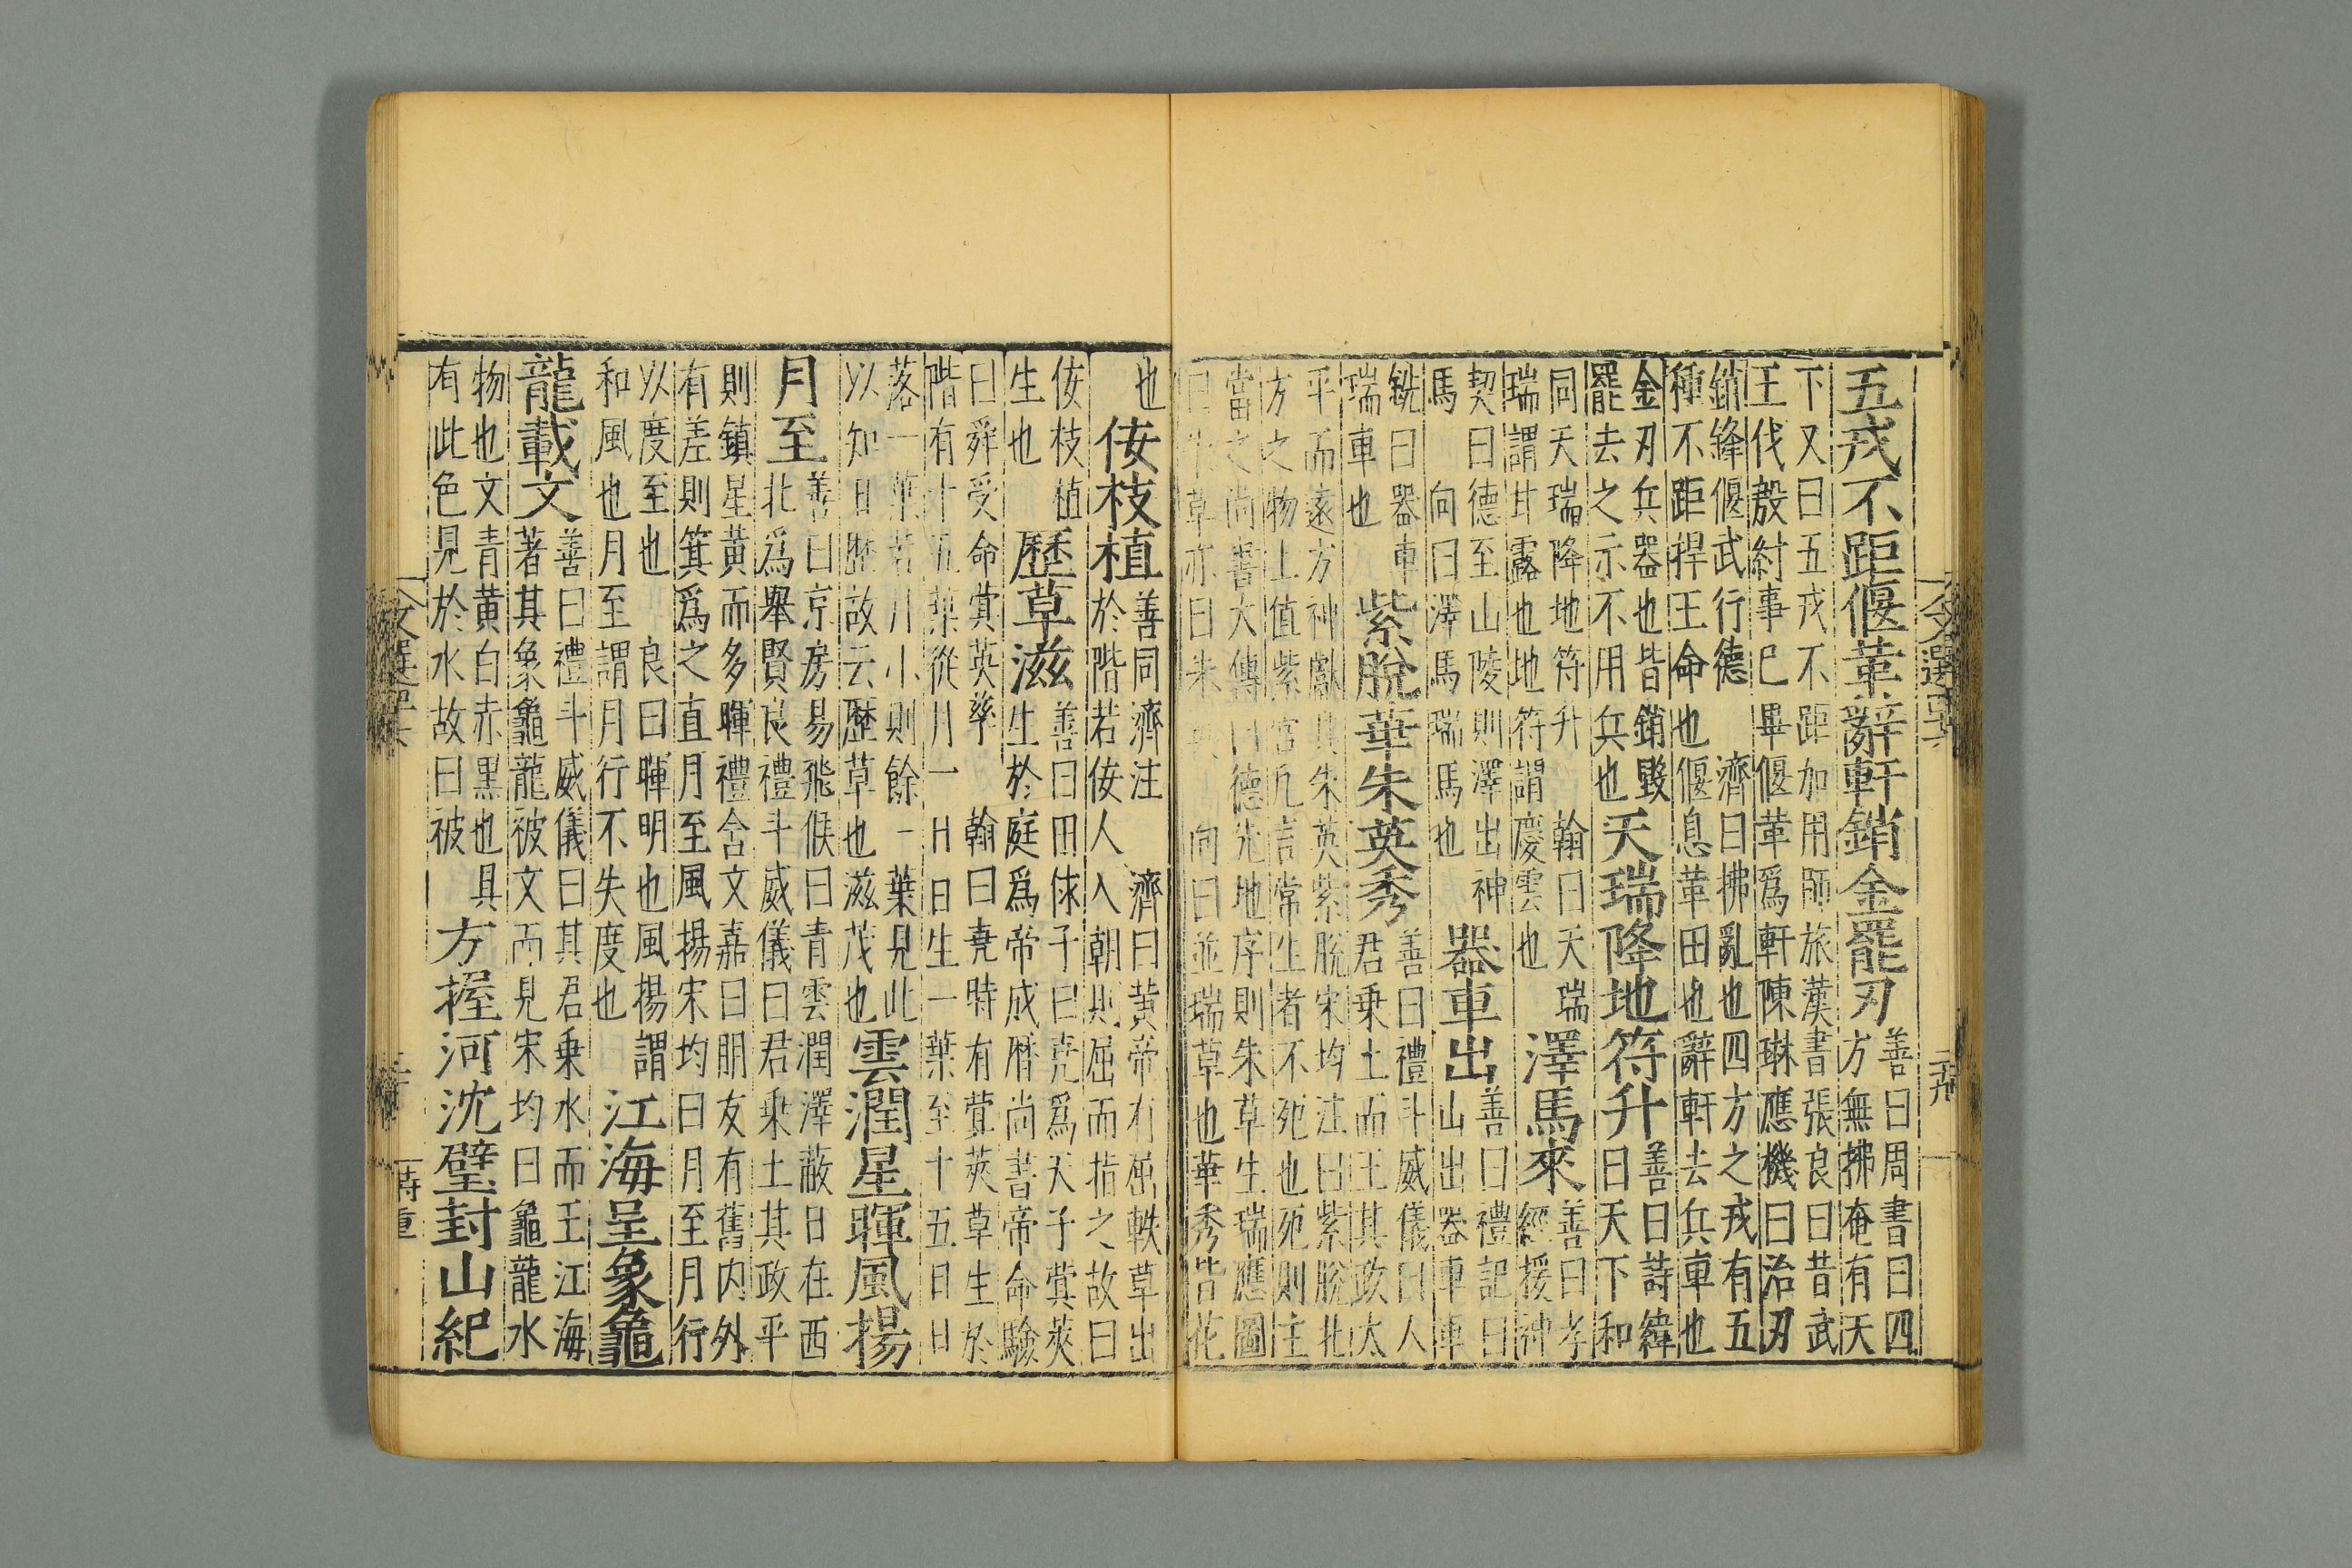 五戎不距偃革辭軒銷金罷刃
善曰周書曰四
方無拂奄有天
下又曰五戎不距加用師旅漢書張良曰昔武
王伐殷紂事巳畢偃革爲軒陳琳應機曰治刃
銷鋒偃武行德 濟曰拂亂也四方之戎有五
種不距捍王命也偃息革田也辭軒去兵車也
金刃兵器也皆銷毀
罷去之示不用兵也
天瑞降地符升
善曰詩緯
曰天下和
同天瑞降地符升 翰曰天瑞
瑞謂甘露也地符謂慶雲也
澤馬來
善曰孝
經援神
契曰德至山陵則澤出神
馬 向曰澤馬瑞馬也
器車出
善曰禮記曰
山出器車車
銑曰器車
瑞車也
紫脫華朱英秀
善曰禮斗威儀曰人
君乘土而王其政太
平而遠方神獻其朱英紫脫宋均注曰紫脫北
方之物上值紫宮凡言常生者不死也死則主
當之尚書大傳曰德先地序則朱草生瑞應圖
曰朱草亦曰朱 向曰並瑞草也華秀皆花
也
佞枝植
善同濟注 濟曰黃帝有屈軼草出
於階若佞人入朝則屈而指之故曰
佞枝植
生也
歷草滋
善曰田俅子曰堯爲天子蓂莢
生於庭爲帝成曆尚書帝命驗
曰舜受命蓂英孳 翰曰堯時有蓂莢草生於
階有十五葉從月一日日生一葉至十五日日
落一葉若月小則餘一葉見此
以知日歷故云歷草也滋茂也
雲潤星暉風揚
月至
善曰京房易飛候曰青雲潤澤蔽日在西
北爲舉賢良禮斗威儀曰君乘土其政平
則鎮星黃而多暉禮含文嘉曰朋友有舊内外
有差則箕爲之直月至風揚宋均曰月至月行
以度至也 良曰暉明也風揚謂
和風也月至謂月行不失度也
江海呈象龜
龍載文
善曰禮斗威儀曰其君乘水而王江海
著其象龜龍被文而見宋均曰龜龍水
物也文青黃白赤黑也具
有此色見於水故曰被
方握河沈璧封山紀
時重